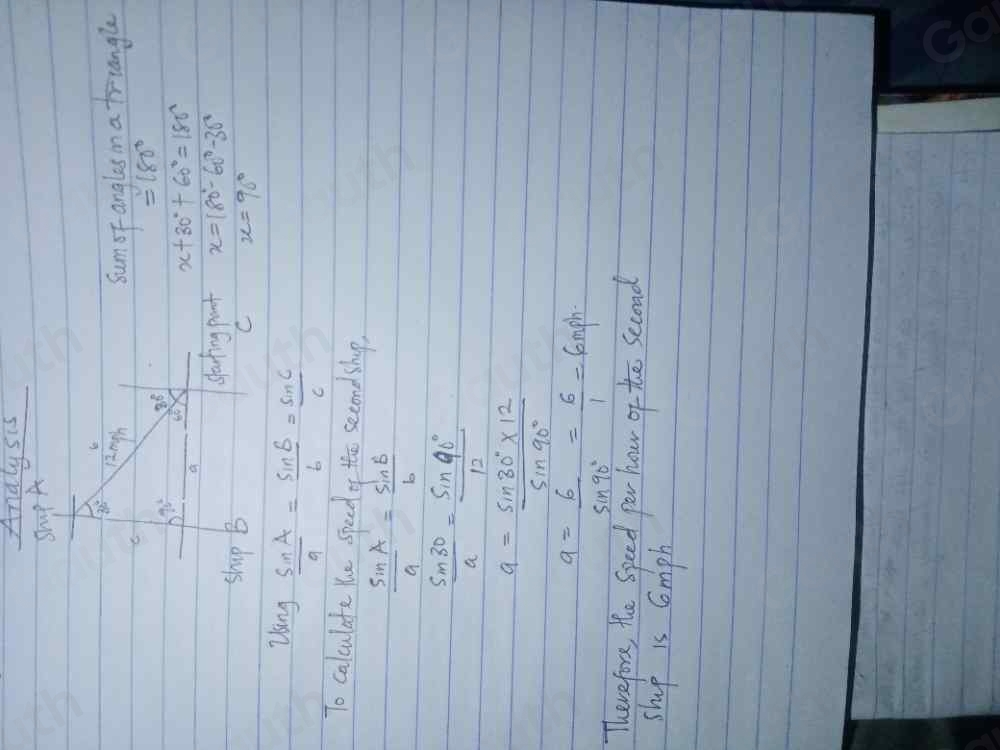 Analysis
Ship A
b
12mph
30°
30°
60°
c
90°
a
Ship B
Starting point
C
Sum of angles in a triangle
= 180°
x + 30° + 60° = 180°
x = 180° - 60° - 30°
x = 90°
Using sin A / a = sin B / b = sin C / c
To calculate the speed of the second ship,
sin A / a = sin B / b
sin 30 / a = sin 90° / 12
a = sin 30° x 12 / sin 90°
a = 6 / sin 90° = 6 / 1 = 6mph.
Therefore, the speed per hour of the second
ship is 6mph
Gauth